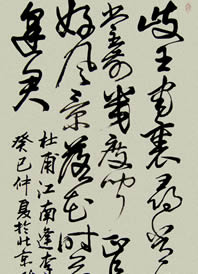 岐王宅裏尋常
堂前幾度聞正
好風景落花時
逢君
杜甫江南逢李
癸巳仲夏於北京